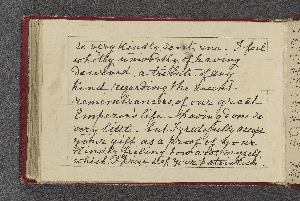 so very kindly sent me. I feel
wholly unworthy of having
deserved a tribute of any
kind regarding the
remembrances of our great
Emperor's life - having done so
very little. But I gratefully accept
your gift as a proof of your
kindly feeling towards myself,
which I prize